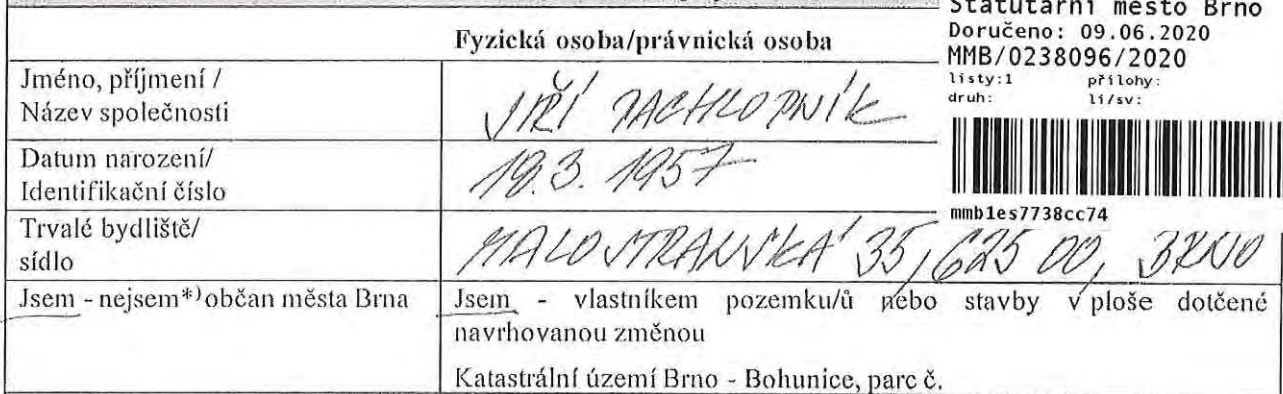 Statutární město Brno
Doručeno: 09.06.2020
MMB/0238096/2020
listy:1 přílohy:
druh: li/sv:
mmb1es7738cc74
Fyzická osoba/právnická osoba
Jméno, příjmení /
Název společnosti
JIŘÍ PACHLOPNÍK
Datum narození/
Identifikační číslo
19.3. 1957
Trvalé bydliště/
sídlo
MALOSTRANSKÁ 35, 625 00, BRNO
Jsem - nejsem*) občan města Brna
Jsem - vlastníkem pozemku/ů nebo stavby v ploše dotčené
navrhovanou změnou
Katastrální území Brno - Bohunice, parc č.